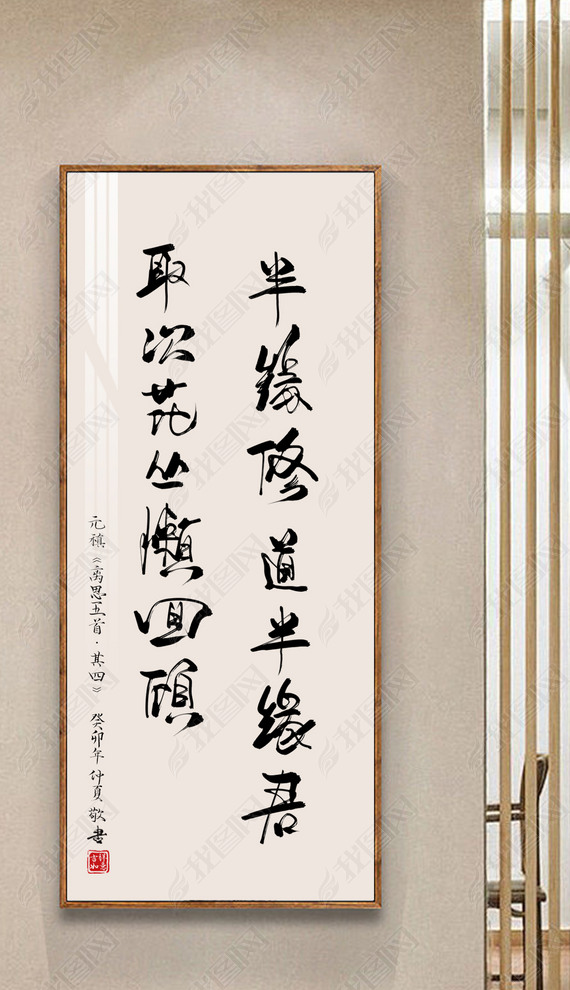 半緣修道半緣君
取次花丛懶回顾
元稹《离思五首·其四》 癸卯年仲夏敬书
找图网